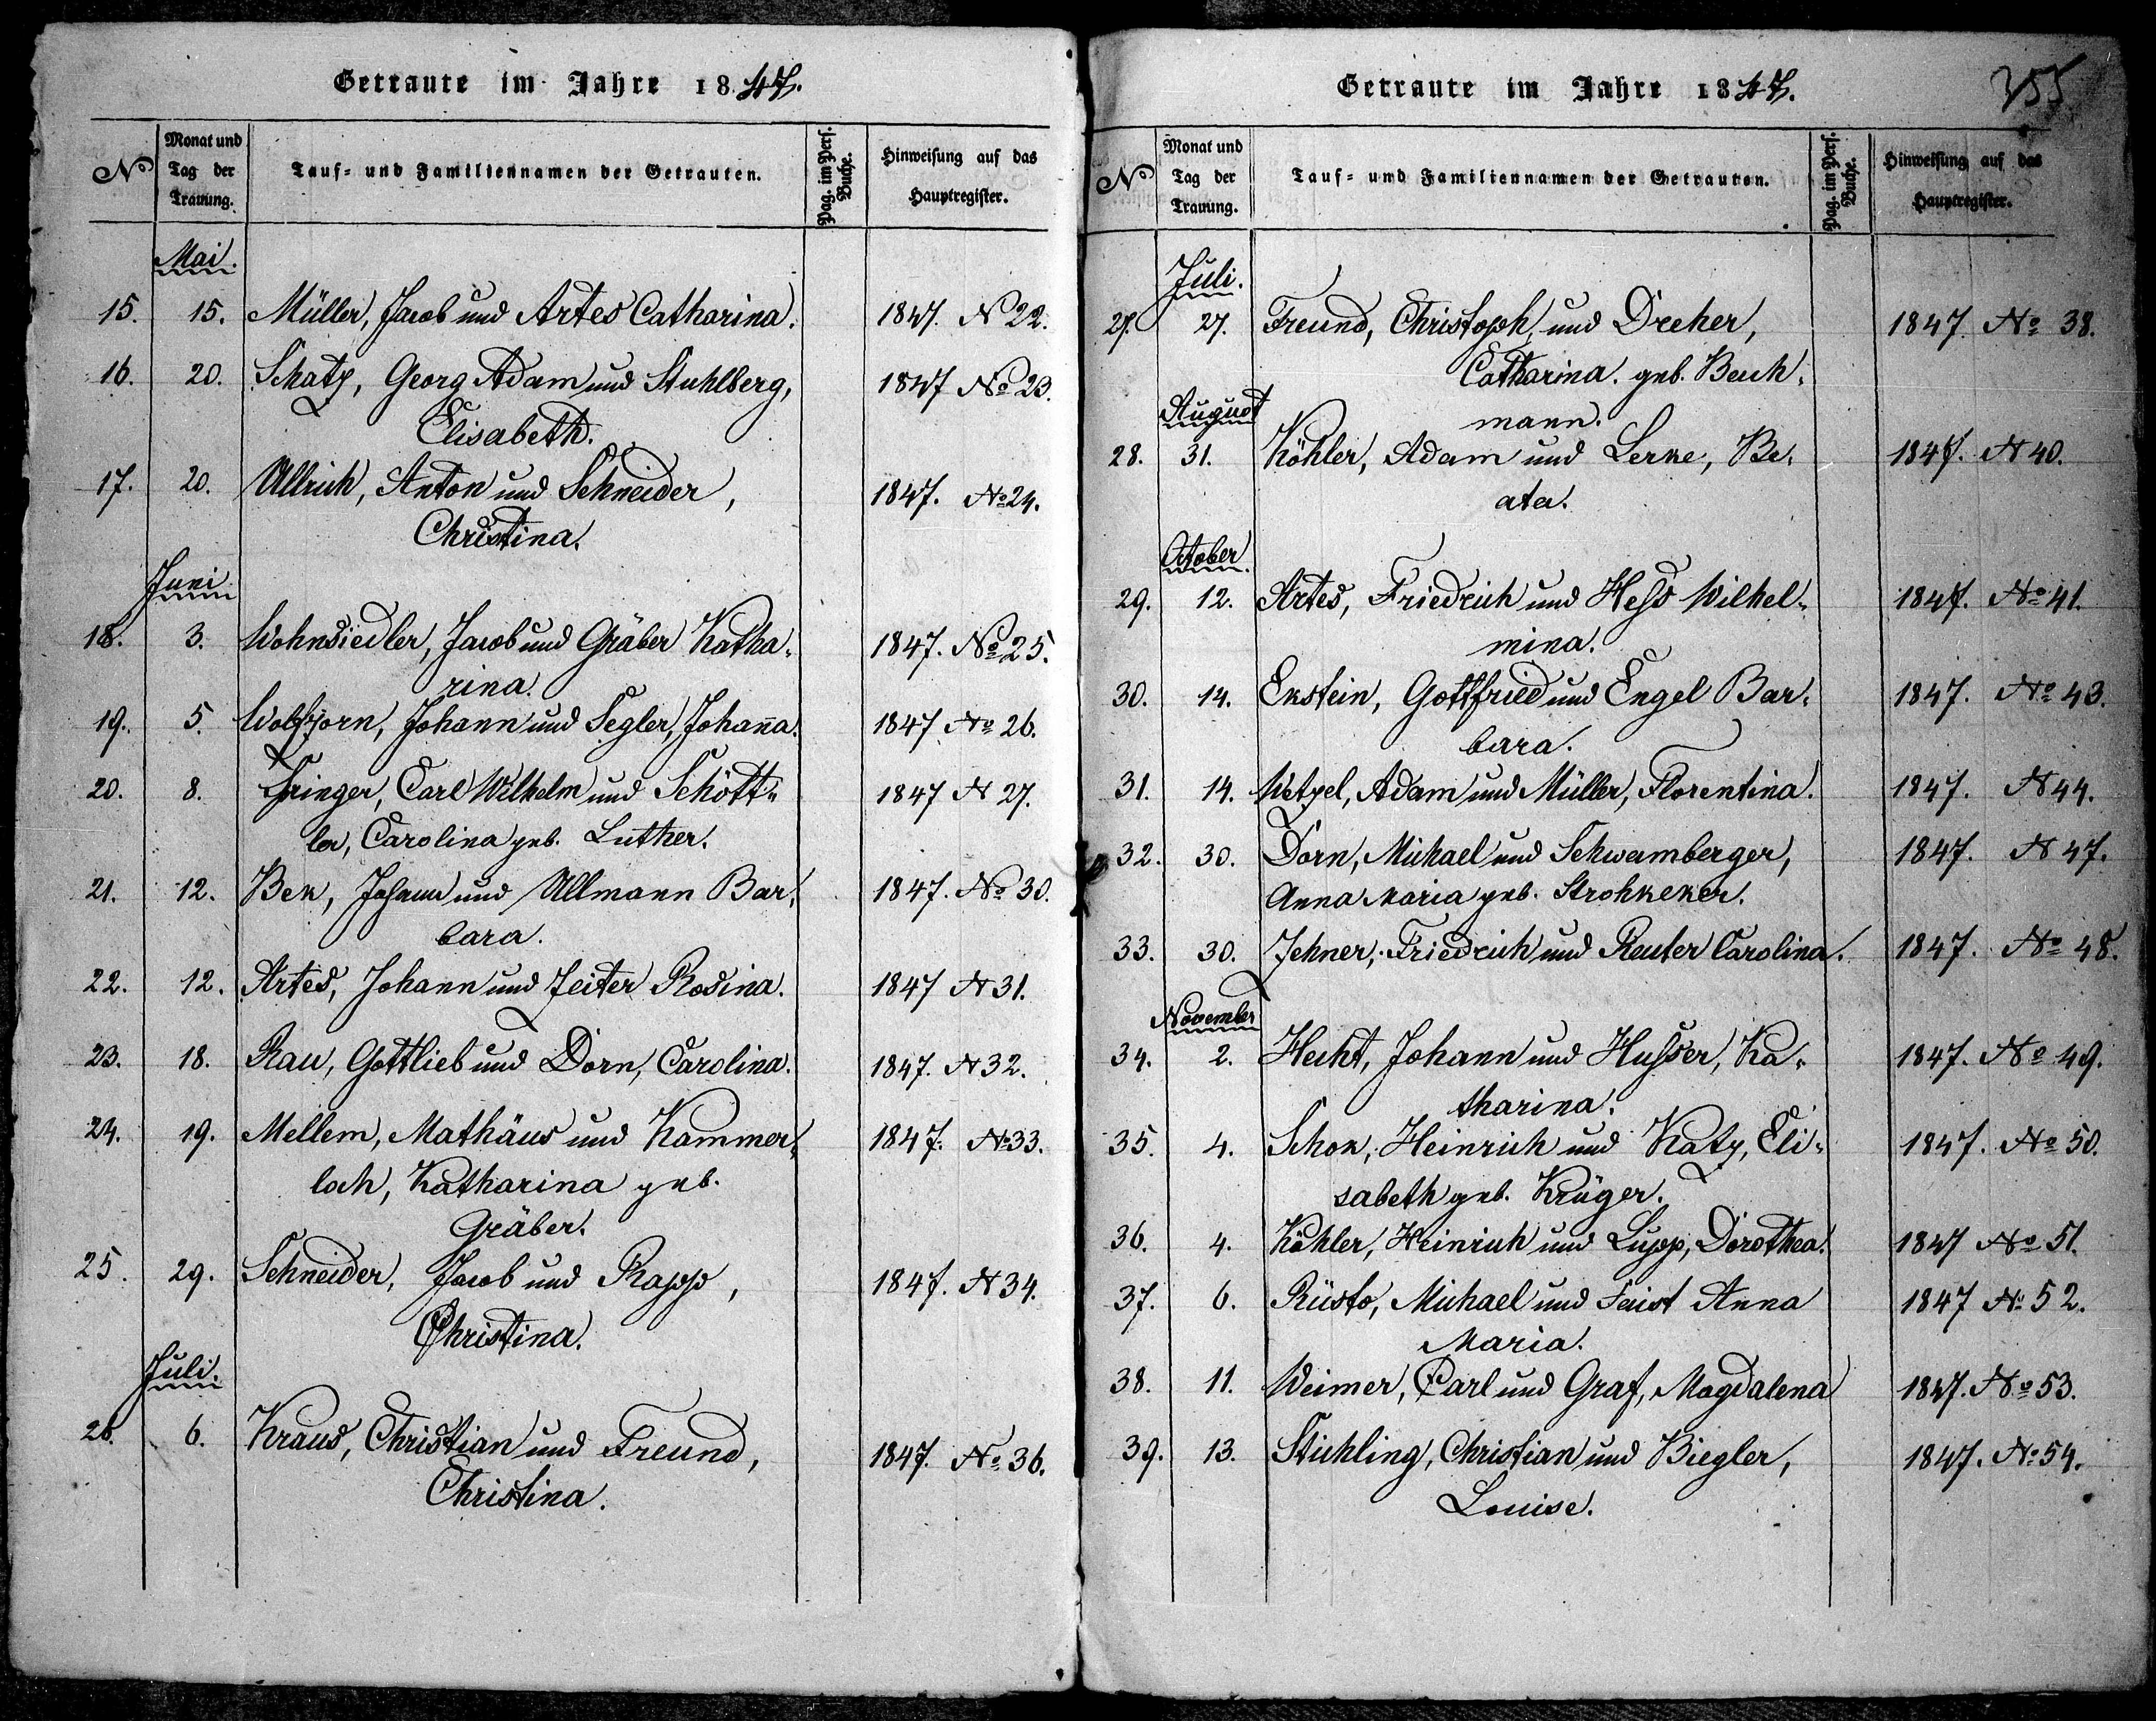 Getraute im Jahre 1847.
No Monat und Tag der Trauung. Tauf- und Familiennamen der Getrauten. Pag. im Pers. Buche. Hinweisung auf das Hauptregister.
Mai.
15. 15. Müller, Jacob und Artes Catharina. 1847. N 22.
16. 20. Schatz, Georg Adam und Stuhlberg, 1847 No 23.
Elisabeth.
17. 20. Ullrich, Anton und Schneider, 1847. No 24.
Christina.
Juni
18. 3. Wohnsiedler, Jacob und Gräber Katha- 1847. No 25.
rina.
19. 5. Johann und Segler, Johanna. 1847 No 26.
20. 8. Carl Wilhelm und Schött- 1847 N 27.
ler, Carolina geb. Luther.
21. 12. Bek, Johann und Ullmann Bar- 1847. No 30.
bara.
22. 12. Artes, Johann und Zeiter Rosina. 1847 N 31.
23. 18. Rau, Gottlieb und Dorn, Carolina. 1847. N 32.
24. 19. Mellem, Mathäus und Kammer- 1847. No 33.
loch, Katharina geb.
Gräber.
25. 29. Schneider, Jacob und Rapp, 1847. N 34.
Christina.
Juli.
26. 6. Kraus, Christian und Freund, 1847. No 36.
Christina.
Getraute im Jahre 1847.
355
No Monat und Tag der Trauung. Tauf- und Familiennamen der Getrauten. Pag. im Pers. Buche. Hinweisung auf das Hauptregister.
Juli.
27. 27. Freund, Christoph, und Dreher, 1847. No 38.
Catharina. geb. Beuh-
mann.
August
28. 31. Köhler, Adam und Lerke, Be- 1847. N 40.
ata.
October.
29. 12. Artes, Friedrich und Hess Wilhel- 1847. No 41.
mina.
30. 14. Ekstein, Gottfried und Engel Bar- 1847. No 43.
bara.
31. 14. Wetzel, Adam und Müller, Florentina. 1847. N 44.
32. 30. Dorn, Michael und Schwamberger, 1847. N 47.
Anna Maria geb. Strohkeker.
33. 30. Zehner, Friedrich und Reuter Carolina. 1847. No 48.
November
34. 2. Hecht, Johann und Husser, Ka- 1847. No 49.
tharina.
35. 4. Schok, Heinrich und Katz, Eli- 1847. No 50.
sabeth geb. Krüger.
36. 4. Köhler, Heinrich und Lupp, Dorothea. 1847 No 51.
37. 6. Michael und Faist Anna 1847 No 52.
Maria.
38. 11. Weimer, Carl und Graf, Magdalena 1847. No 53.
39. 13. Stichling, Christian und Biegler, 1847. No 54.
Louise.